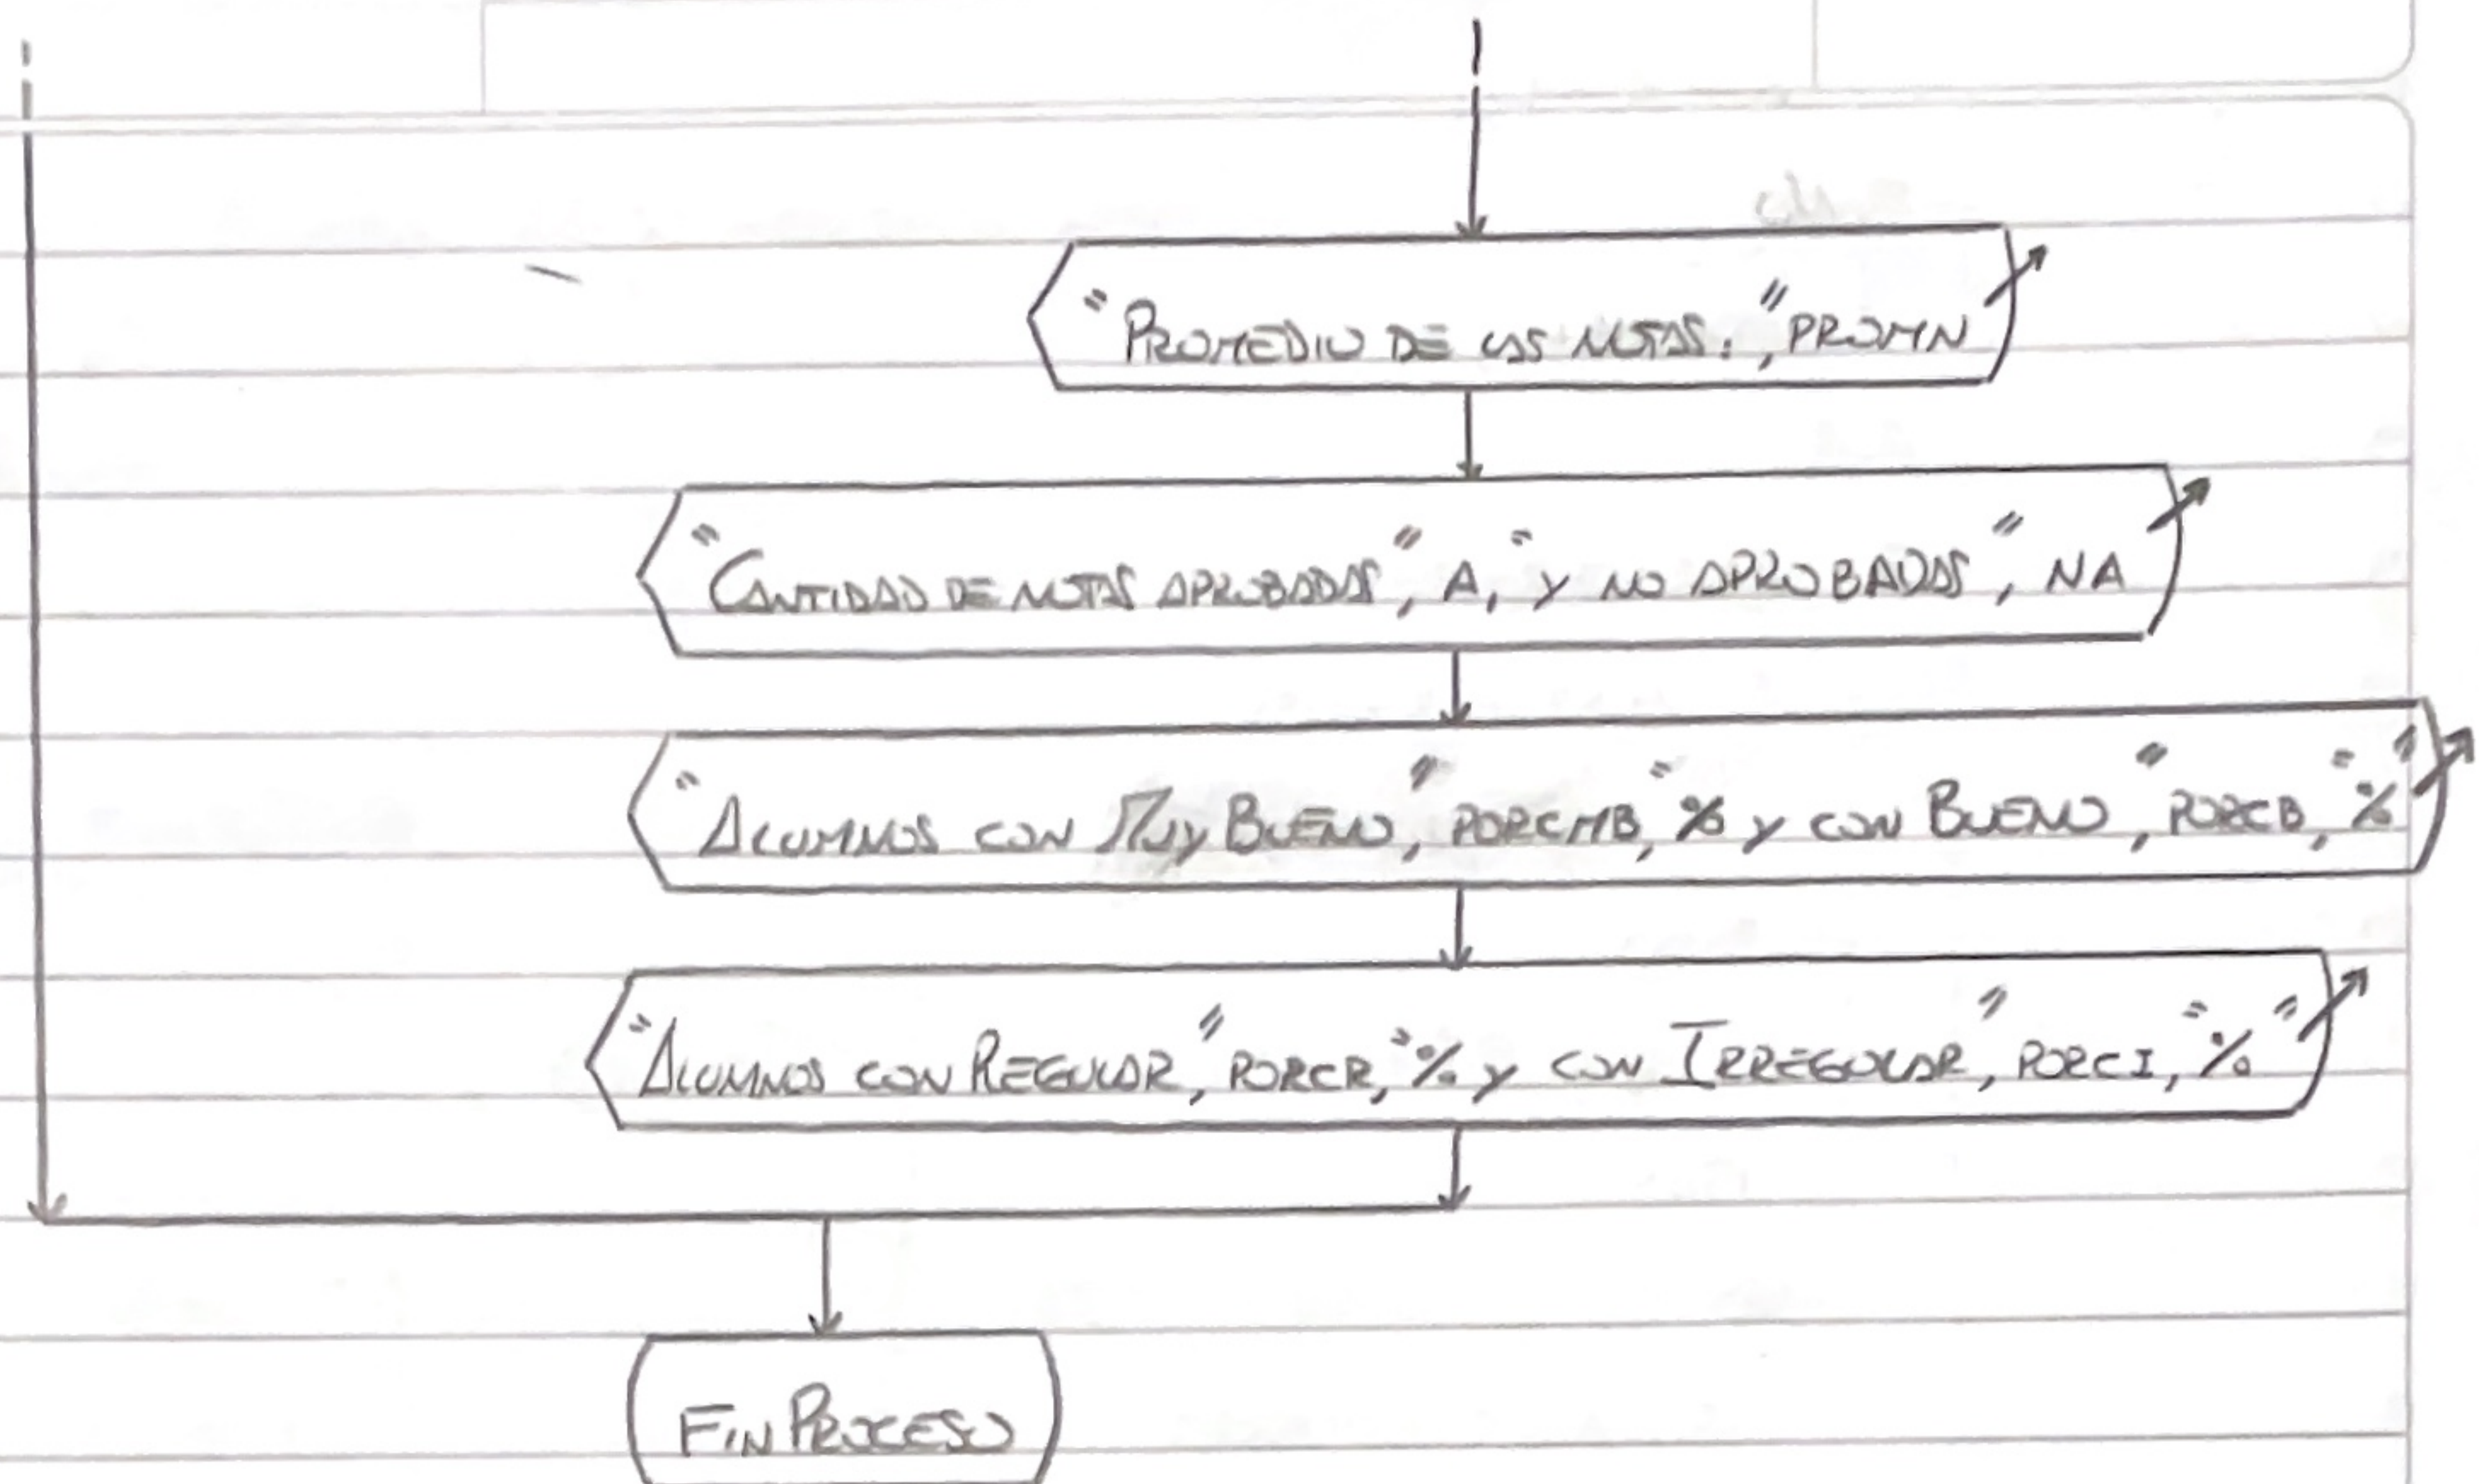 "PROMEDIO DE LAS NOTAS: ", PROMN
"CANTIDAD DE NOTAS APROBADAS", A, " Y NO APROBADAS", NA
"ALUMNOS CON MUY BUENO", PORCMB, "% Y CON BUENO", PORCB, "%"
"ALUMNOS CON REGULAR", PORCR, "% Y CON IRREGULAR", PORCI, "%"
FIN PROCESO